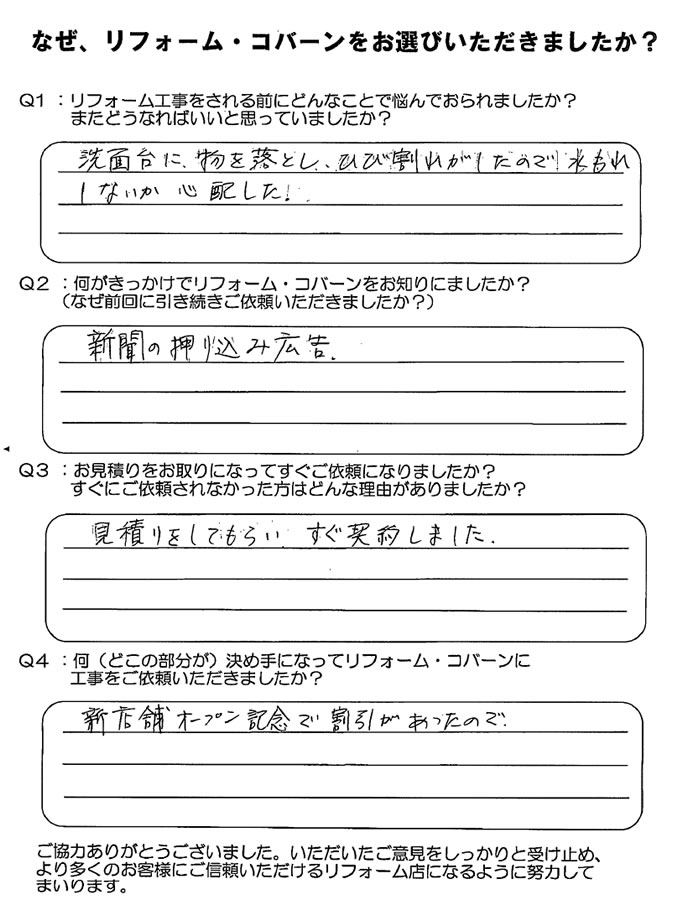 なぜ、リフォーム・コバーンをお選びいただきましたか？
Q1 ：リフォーム工事をされる前にどんなことで悩んでおられましたか？
またどうなればいいと思っていましたか？
洗面台に、物を落とし、ひび割れがしたので水もれ
しないか心配した！
Q2 ：何がきっかけでリフォーム・コバーンをお知りにましたか？
（なぜ前回に引き続きご依頼いただきましたか？）
新聞の押り込み広告.
Q3 ：お見積りをお取りになってすぐご依頼になりましたか？
すぐにご依頼されなかった方はどんな理由がありましたか？
見積りをしてもらい すぐ契約しました.
Q4 ：何（どこの部分が）決め手になってリフォーム・コバーンに
工事をご依頼いただきましたか？
新店舗オープン記念で割引があったので.
ご協力ありがとうございました。いただいたご意見をしっかりと受け止め、
より多くのお客様にご信頼いただけるリフォーム店になるように努力して
まいります。